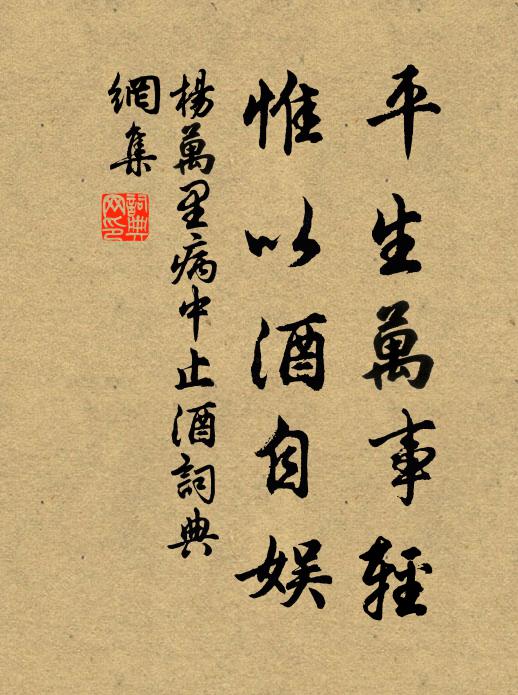 平生萬事輕
惟以酒自娛
楊萬里病中止酒詞典
網集
詞典
网印